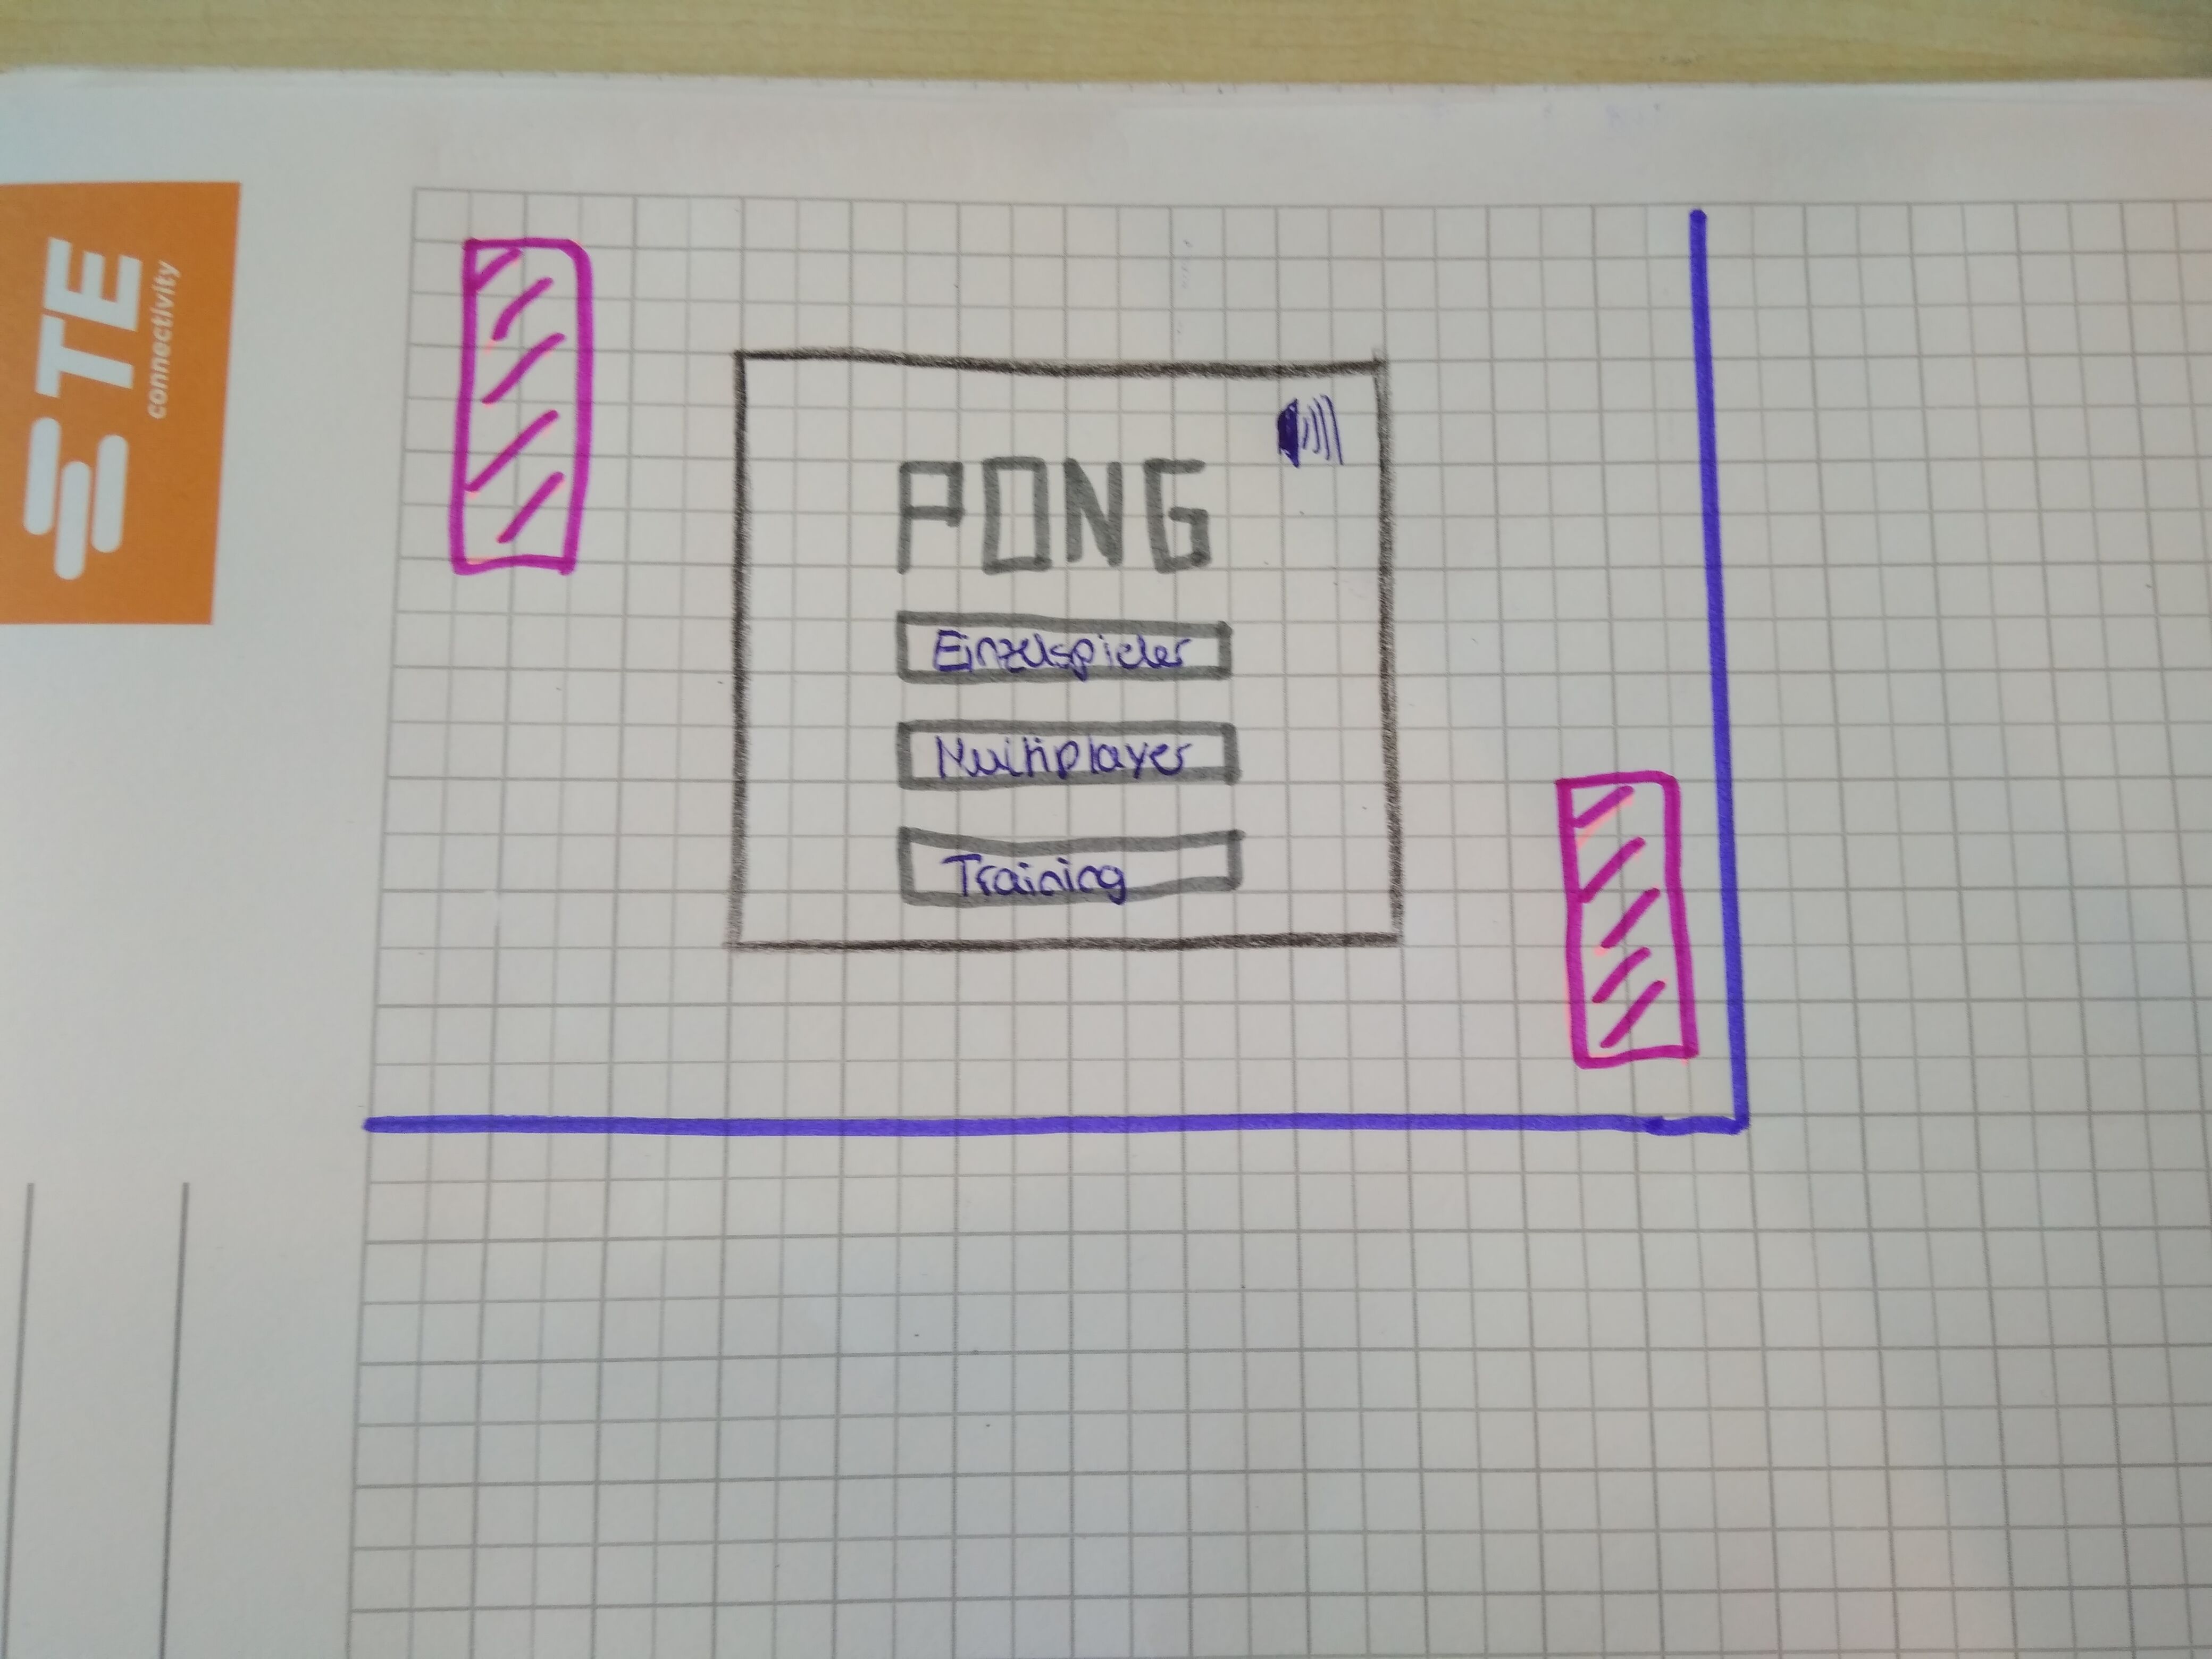 TE
connectivity
PONG
Einzelspieler
Multiplayer
Training